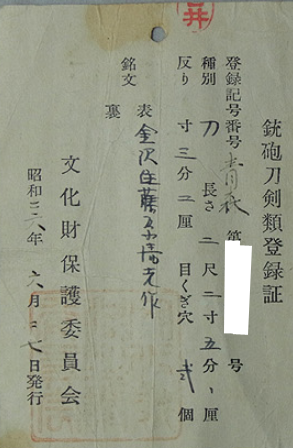 銃砲刀剣類登録証
登録記号番号 第 号
種別 刀 長さ 二尺二寸五分、厘
反り 寸三分二厘 目くぎ穴 弐個
銘文 表 金沢住藤原清光作
裏
昭和三六年六月二七日発行
文化財保護委員会